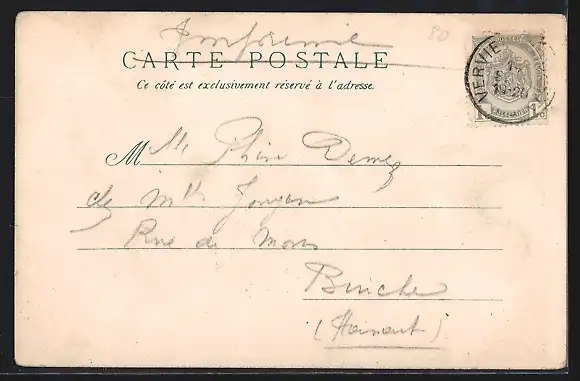 Imprimé
80
CARTE POSTALE
Ce côté est exclusivement réservé à l'adresse.
VERVIE
M lle
de Mlle Jongen
Rue de Mons
Binche
(Hainaut)